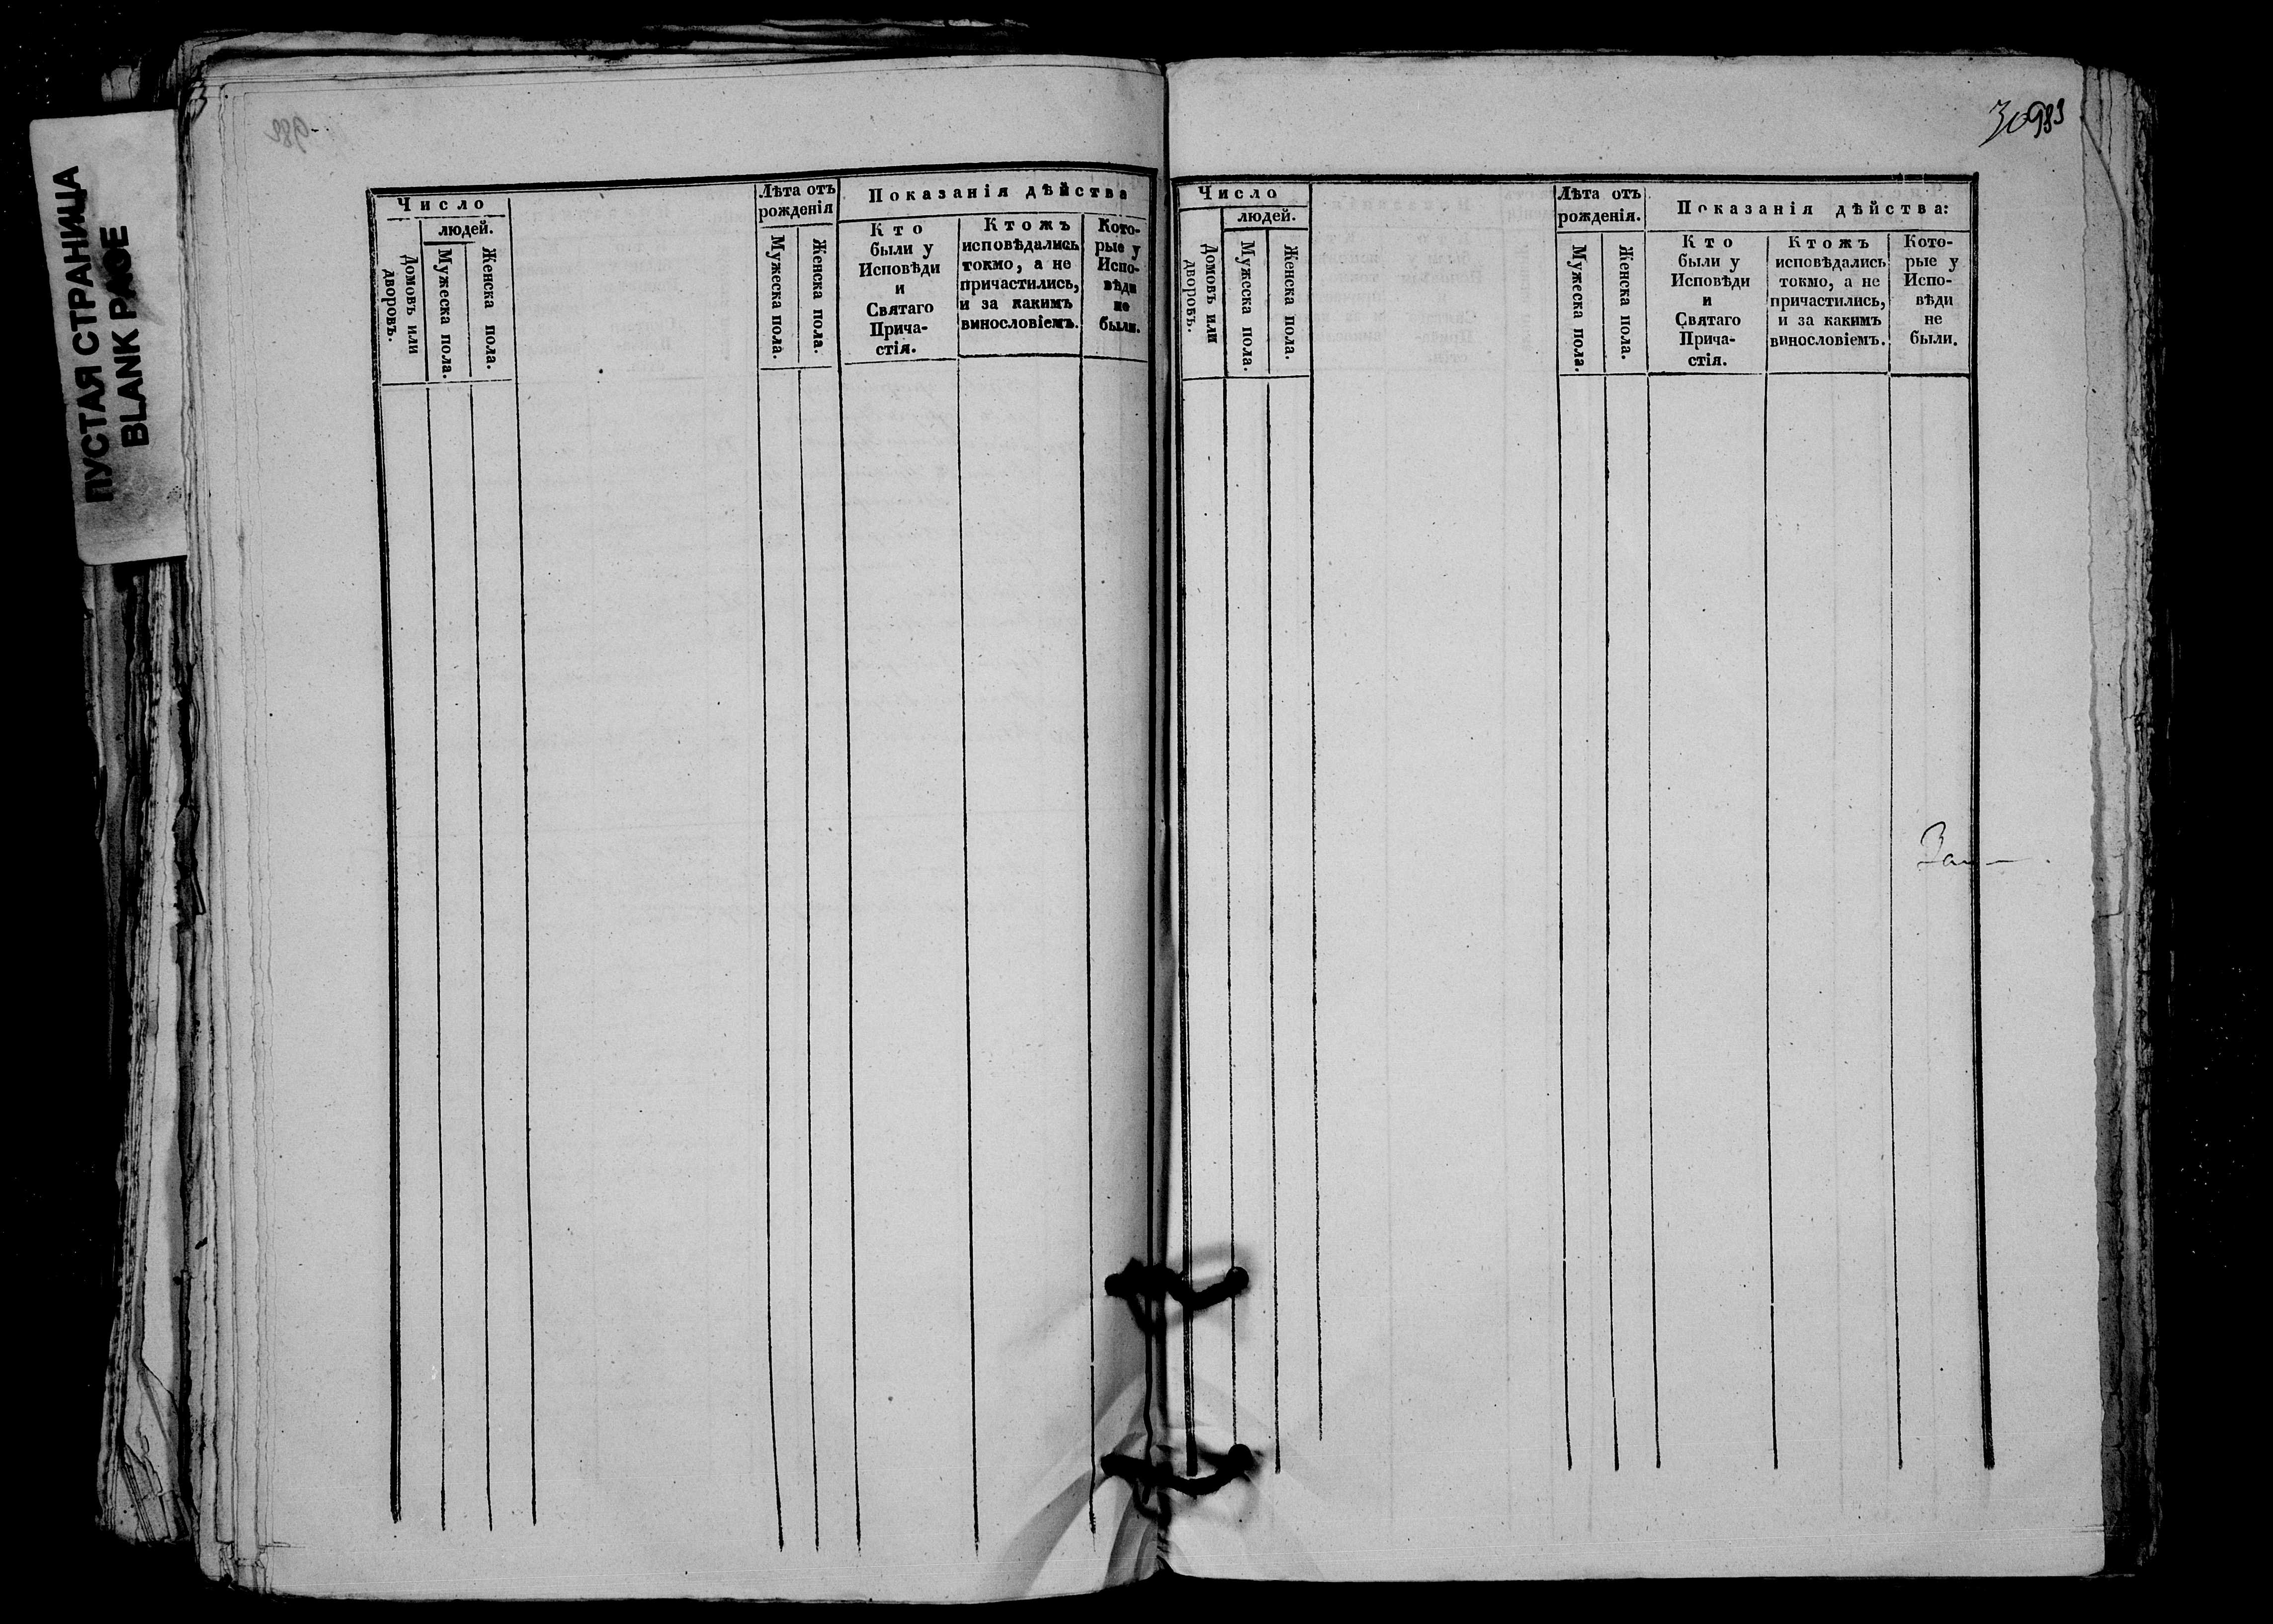 ПУСТАЯ СТРАНИЦА
BLANK PAGE
Число
людей.
Домовъ или
дворовъ.
Мужеска пола.
Женска пола.
Лѣта отъ
рожденія
Мужеска пола.
Женска пола.
Показанія дѣйства
Кто
были у
Исповѣди
и
Святаго
Прича-
стія.
Ктожъ
исповѣдались
токмо, а не
причастились,
и за какимъ
винословіемъ.
Кото-
рые у
Испо-
вѣди
не
были.
30983
Число
людей.
Домовъ или
дворовъ.
Мужеска пола.
Женска пола.
Лѣта отъ
рожденія.
Мужеска пола.
Женска пола.
Показанія дѣйства:
Кто
были у
Исповѣди
и
Святаго
Прича-
стія.
Ктожъ
исповѣдались
токмо, а не
причастились,
и за какимъ
винословіемъ.
Кото-
рые у
Испо-
вѣди
не
были.